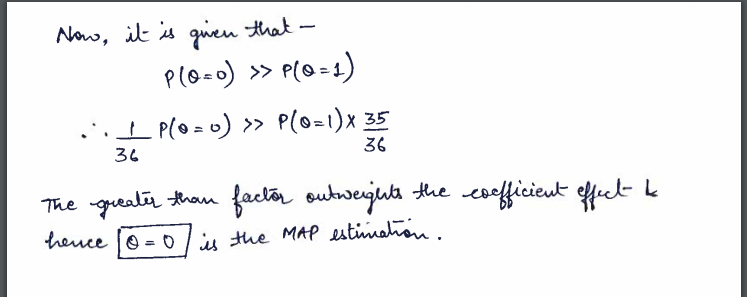 Now, it is given that —
P(θ=0) >> P(θ=1)
∴ 1/36 P(θ=0) >> P(θ=1) × 35/36
The greater than factor outweights the coefficient effect &
hence θ = 0 is the MAP estimation.